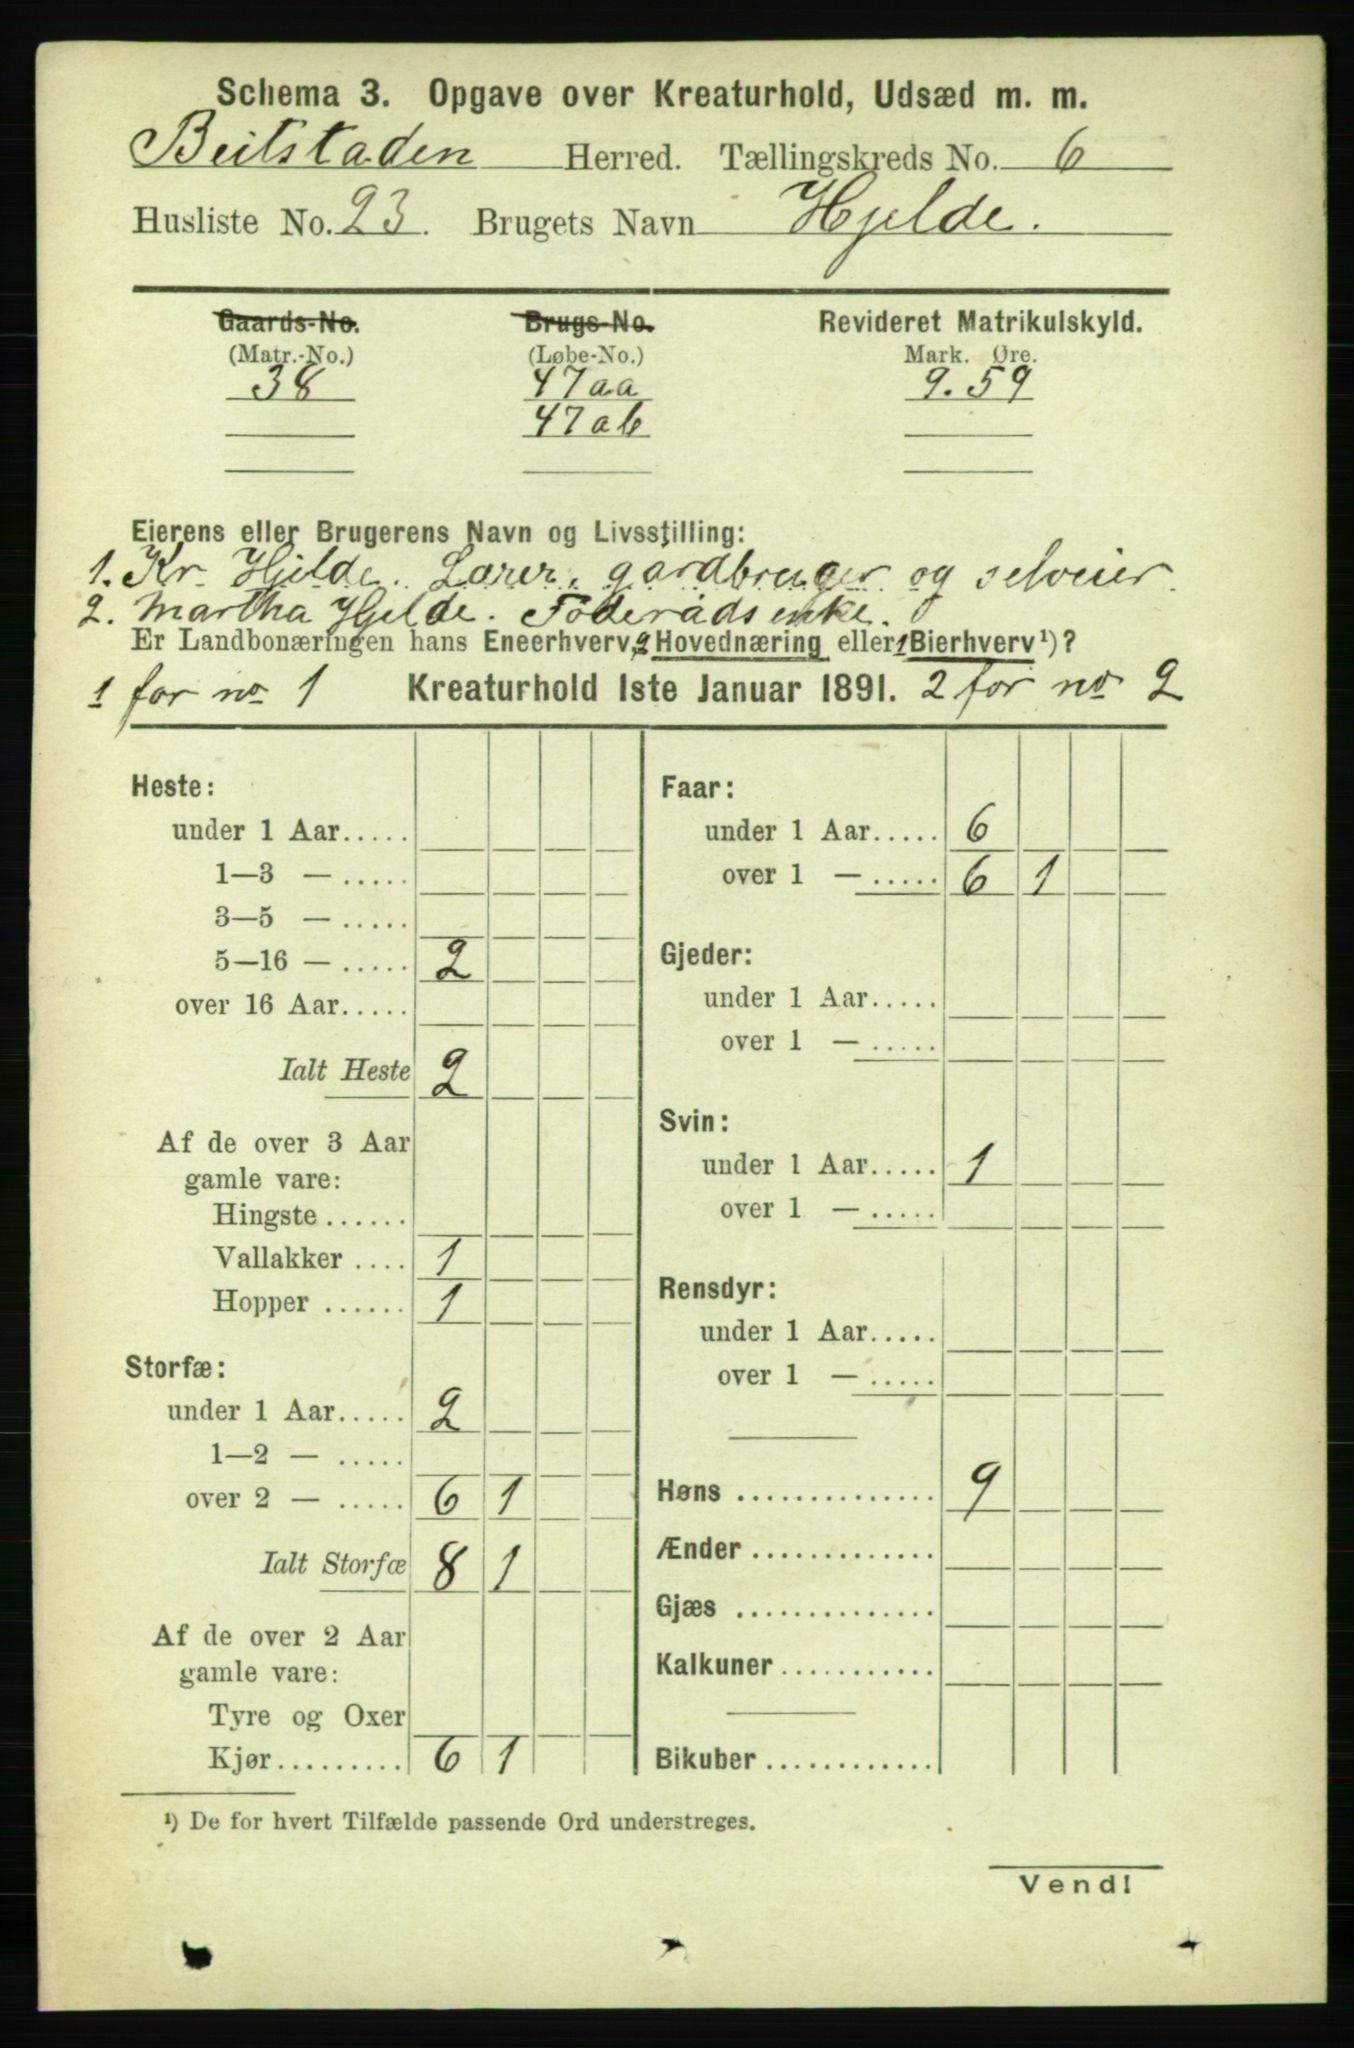 Schema 3. Opgave over Kreaturhold, Udsæd m. m.
Beitstaden Herred. Tællingskreds No. 6
Husliste No. 23. Brugets Navn Hjelde.
Gaards-No. Brugs-No. Revideret Matrikulskyld.
(Matr.-No.) (Løbe-No.) Mark. Øre.
38 47aa 9.59
47ab
Eierens eller Brugerens Navn og Livsstilling:
1. Kr. Hjelde. Lærer, gardbruger og selveier.
2. Martha Hjelde. Føderåds enke.
Er Landbonæringen hans Eneerhverv, 2 Hovednæring eller 1 Bierhverv¹)?
1 for no 1 Kreaturhold 1ste Januar 1891. 2 for no 2
Heste:
under 1 Aar.....
1—3 — .....
3—5 — .....
5—16 — ..... 2
over 16 Aar.....
Ialt Heste 2
Af de over 3 Aar
gamle vare:
Hingste ......
Vallakker .... 1
Hopper ...... 1
Storfæ:
under 1 Aar..... 2
1—2 — .....
over 2 — ..... 6 1
Ialt Storfæ 8 1
Af de over 2 Aar
gamle vare:
Tyre og Oxer
Kjør......... 6 1
Faar:
under 1 Aar..... 6
over 1 — ..... 6 1
Gjeder:
under 1 Aar.....
over 1 — .....
Svin:
under 1 Aar..... 1
over 1 — .....
Rensdyr:
under 1 Aar.....
over 1 — .....
Høns .............. 9
Ænder .............
Gjæs ..............
Kalkuner...........
Bikuber ............
¹) De for hvert Tilfælde passende Ord understreges.
Vend!